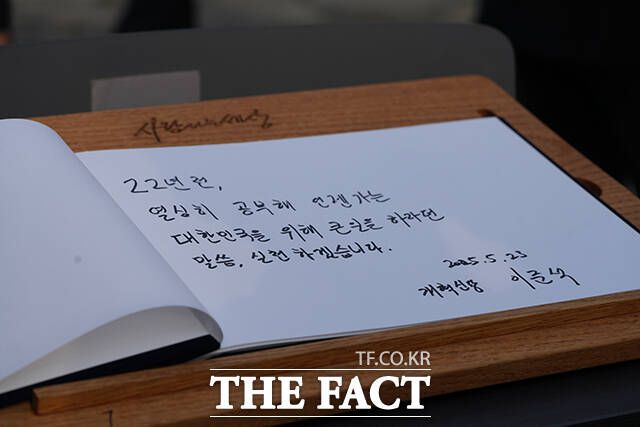 사람사는세상
22년 전,
열심히 공부해 언젠가는
대한민국을 위해 큰일을 하라던
말씀, 실천하겠습니다.
2025.5.23
개혁신당 이준석
TF.CO.KR
THE FACT